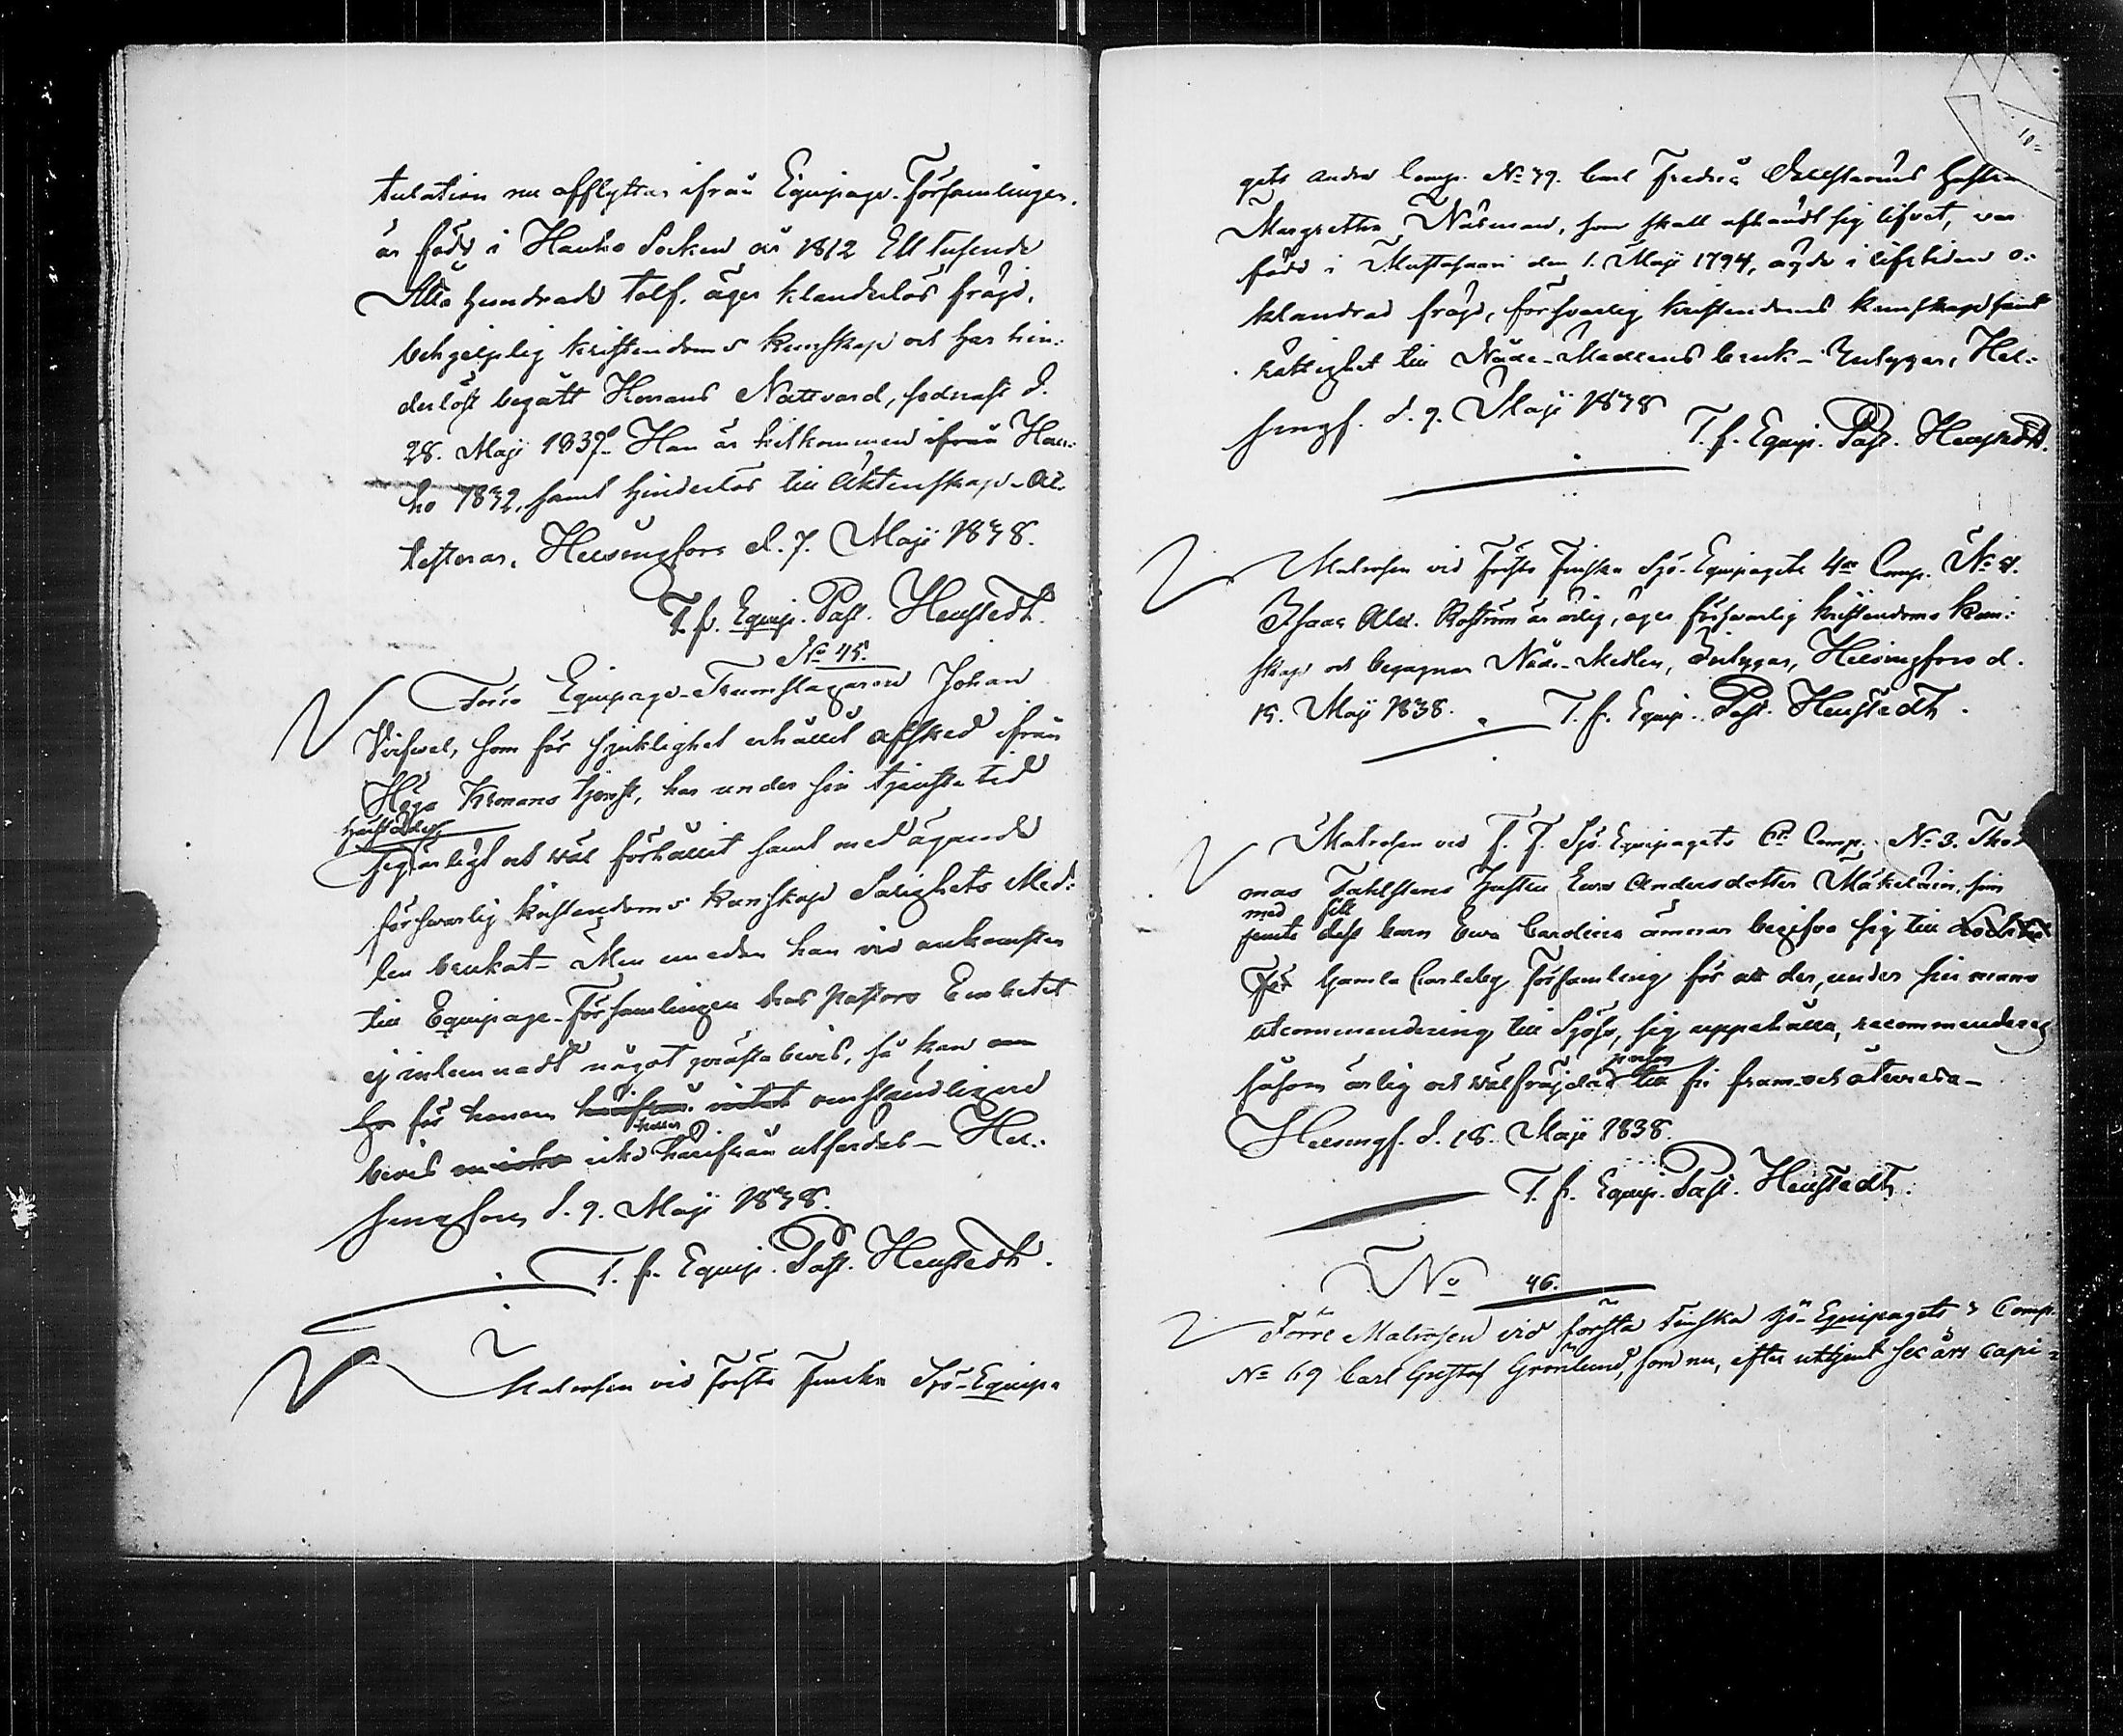 tulation nu afflyttar ifrån Equipage-Församlingen,
är född i Hauho Socken år 1812 Ett tusende
Åtta hundrade tolf, äger klanderlös frägd,
behjelplig kristendoms kunskap och har hin-
derlöst begått Herrans Nattvard, sednast d.
28. Maji 1837. Han är hitkommen ifrån Hau-
ho 1832, samt hinderlös till Äktenskap. At-
testeras, Helsingfors d. 7. Maji 1838.
T. f. Equip. Past. Henstedt.
No 45.
Förre Equipage-Trumslagaren Johan
som för sjuklighet erhållit afsked ifrån
Höga Kronans tjenst, har under sin tjenste tid
härstädes
sig ärligt och wäl förhållit samt med ägande
försvarlig kristendoms kunskap Salighets Med-
len brukat. Men emedan han vid ankomsten
till Equipage-Församlingen hos Pastors Embetet
ej inlemnadt något prästa bevis, så kan
för honom härifrån intet omständligare
heller
bevis icke härifrån utfärdas. Hel-
singfors d. 9. Maji 1838.
T. f. Equip. Past. Henstedt.
Matrosen vid Första Finska Sjö-Equipa
gets andra Comp. No 79. Carl Fredric hustru
Margretha Näsman, som skall afhändt sig lifvet, var
född i Mustasaari den 1. Maji 1794, ägde i lifstiden o-
klandrad frägd, försvarlig kristendoms kunskap samt
rättighet till Nåde-Medlens bruk. Intygar, Hel-
singf. d. 9. Maji 1838
T. f. Equip. Past. Henstedt.
Matrosen vid Första Finska Sjö-Equipagets 4de Comp. No 8.
Isaac Alex. Roström är ärlig, äger försvarlig kristendoms kun-
skap och begagnar Nåde-Medlen, Intygar, Helsingfors d.
15. Maji 1838. T. f. Equip. Past. Henstedt.
Matrosen vid F. F. Sjö Equipagets Comp. No 3. Tho
mas Tahlstens Hustru Ewa Andersdotter Mäkeläin, som
med sitt
jemte dess barn Ewa Carolina ämnar begifva sig till
Gamla Carleby Församling för att der, under sin mans
utcommendering till Sjöss, sig uppehålla, recommenderas
person
såsom ärlig och wälfräjdad till fri fram- och återresa.
Helsingf. d. 18. Maji 1838.
T. f. Equip. Past. Henstedt.
No 46.
Förre Matrosen vid första Finska sjö-Equipagets Comp.
No 69 Carl Gustaf Grönlund, som nu, efter uttjent sex års capi-